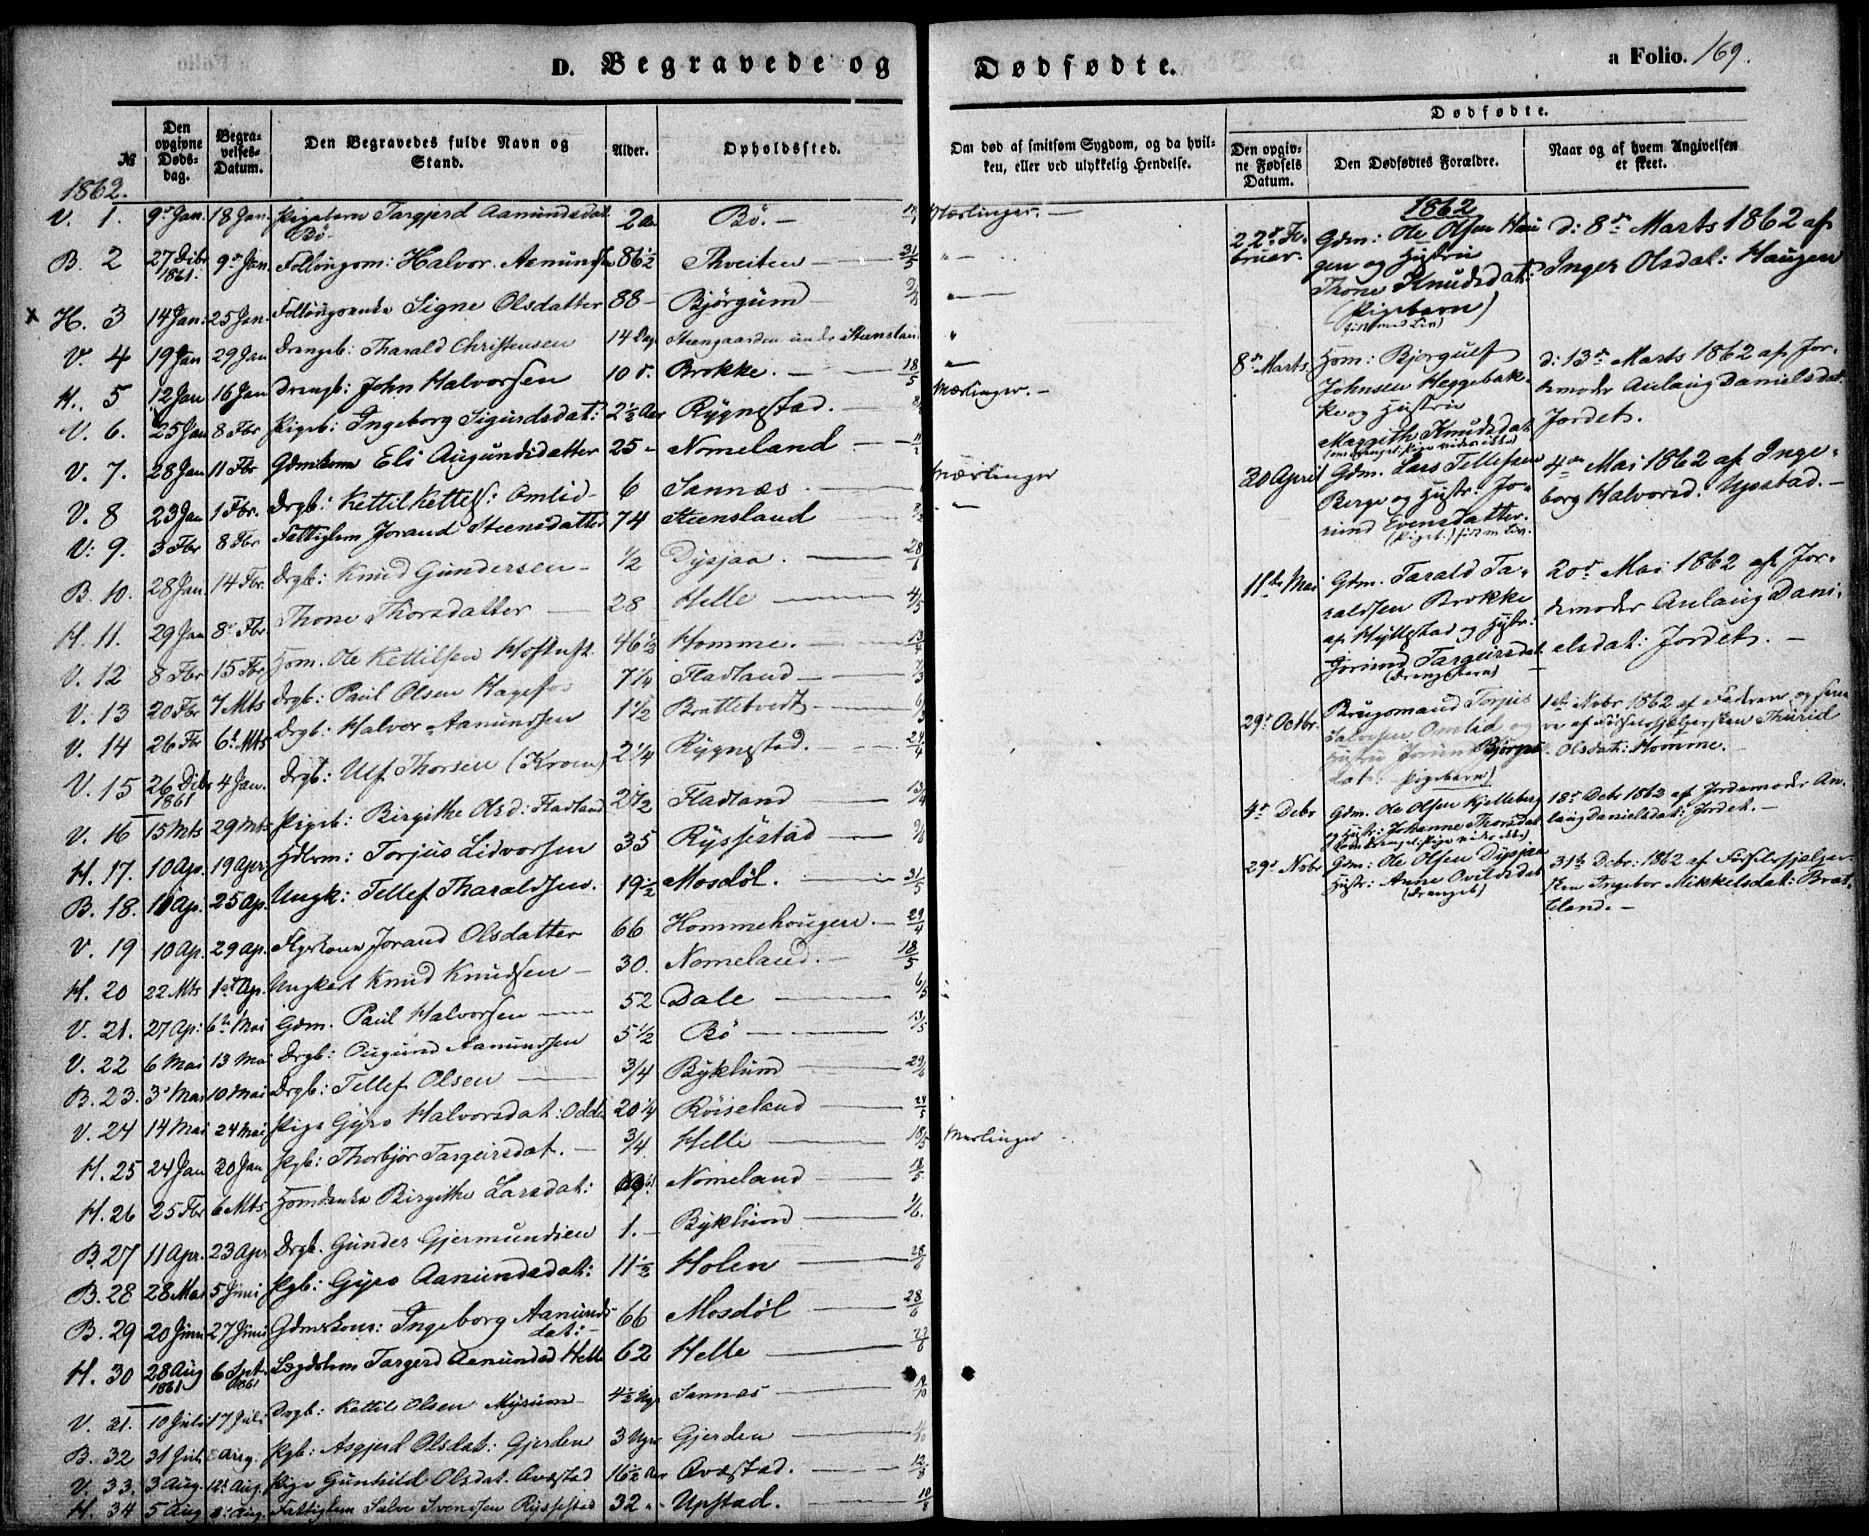 D. Begravede og Dødfødte.
a Folio. 169.
№
Den opgivne Døds-dag.
Begra-velses-Datum.
Den Begravedes fulde Navn og Stand.
Alder.
Opholdssted.
Om død af smitsom Sygdom, og da hvil-ken, eller ved ulykkelig Hendelse.
Dødfødte.
Den opgiv-ne Fødsels Datum.
Den Dødfødtes Forældre.
Naar og af hvem Angivelsen er skeet.
1862.
V. 1. 9de Jan. 18 Jan. Pigebarn Targjerd Aamundsdat. Bø 2 Aar Bø. Mæslinger.
B. 2 27 Dcbr 1861. 9de Jan. Føllougsm: Halvor Asmundsen 86½ Thveiten 31/5 "
x H. 3 14 Jan: 25 Jan. Signe Olsdatter 88 Bjørgum "
V. 4 19 Jan 29 Jan Drengeb: Tharald Christensen 14 Dag Steengaarden under Steensland "
H. 5 12 Jan 16 Jan Drengb: John Halvorsen 10 Brokke. 18/5 "
V. 6. 25 Jan 8 Fbr Pigeb: Ingeborg Sigurdsdat: 2½ Aar Rygnestad. Mæslinger.
V. 7. 28 Jan 11 Fbr Gdmkone Eli Augundsdatter 25 Nomeland
V. 8 23 Jan 1 Fbr. Drgb: Kettil Kettels: Omlid 6 Sannæs Mæslinger
V: 9. 3 Fbr 8 Fbr Fattiglem Jorand Steensdatter 74 Steensland "
B. 10. 28 Jan 14 Fbr. Drgb: Knud Gundersen ½ Dysjaa. 28/
H. 11. 29 Jan 8de Fbr Thone Thorsdatter 28 Helle 4/5
V. 12 8 Fbr 15 Fbr Hsm. Ole Kettilsen Hoftuft 46½ Homme. 13/4
V. 13 20 Fbr 7 Mts Drgb: Paul Olsen Hagefos 7¼ Fladland 7/3
V. 14 26 Fbr 6te Mts Drgb: Halvor Aamundsen 1½ Brottebredt
V. 15 26 Dcbr 1861 4 Jan. Drgb: Ulf Thorsen (Kroen) 2¼ Rygnestad. 24/4
V. 16 15 Mts 29 Mts Pigeb: Birgithe Olsd: Fladland 2½ Fladland 13/4
H. 17. 10 Ap. 19 Apr: Torjus Lidvorsen 35 Ryssestad
B. 18. 11 Ap. 25 Ap. Ungk: Tellef Tharaldsen. 19½ Mosdøl. 31/5
V. 19 10 Ap. 29 Ap. Jorand Olsdatter 66 Hommehougen. 29/4
H. 20 22 Mts 1st Ap. Ungkarl Knud Knudsen 30. Nomeland. 18/5
V. 21. 27 Ap: 6te Mai Gdm. Paul Halvorsen 52 Dale 6/5
V. 22 6 Mai 13 Mai Drgb: Ougund Aamundsen 5½ Bø 13/5
B. 23. 3de Mai 10 Mai Drgb: Tellef Olsen ¾ Byklum 29/6
V. 24 14 Mai 24 Mai Pige Gyro Halvorsdat: Odde 20¼ Røiseland 24/5
H. 25 24 Jan 20 Jan Pgb: Thorbjør Targeirsdat. ¾ Helle 18/5 Mæslinger
H. 26 25 Fbr 6 Mts Birgithe Larsdat: Nomeland 18/5
B. 27 11 Apr. 23 Apr Drgb. Gunder Gjermundsen 1. Byklum 1/6.
B. 28 28 Mai 5 Juni Pgb: Gyro Aamundsdat: 11½ Holen 28/6
B. 29 20 Juni 27 Juni Gdmkone: Ingeborg Aamundsdat: 66 Mosdøl 28/6
H. 30 28 Aug 1861 6 Sept 1861 Lægdslem Targerd Asmundsd Helle 62 Helle
V. 31. 10 Juli 17 Juli Drgb: Kettil Olsen Myrum 4½ Uge Sannæs
B. 32 31 Juli Aug. Pgb: Asgjerd Olsdat: Gjerden 3 Uger Gjerden
V. 33. 3 Aug. 12 Aug. Pige Gunhild Olsdat. Ovæstad 16½ Aar Ovæstad. 12/8
H. 34 5 Aug Aug. Fattiglem Salve Svendsen Ryssestad 32 Upstad. 10/8
1862
22de Februar. Gdm: Ole Olsen Haugen og Hustru Thone Knudsdat: (Pigebarn)
d: 8de Marts 1862 af Inger Olsdat: Haugen
8de Marts. Hsm: Bjørgulf Johnsen Heggebakke og Hustru Margith Knudsdat
d: 13de Marts 1862 af Jordemoder Anlaug Danielsdat: Jordet.
30 April Gdm. Lars Tellefsen Berge og Hustr: Jorund Evensdatter. (Pigeb.)
4de Mai 1862 af Ingeborg Halvorsd: Upstad.
11te Mai Gdm. Tarald Taraldsen Brokke af Hyllestad og Hustr: Jorund Targeirsdat. (Drengebarn)
20de Mai 1862 af Jordemoder Anlaug Danielsdat: Jordet.
29de Octbr Brugsmand Torjus Salvesen Omlid og Hustru Jorund Bjørgusdat: (Pigebarn)
1ste Nobr 1862 af Faderen og senere af Fødselshjælpersken Thurid Olsdat: Homme.
4de Debr Gdm. Ole Olsen Kjelleberg og Hustr: Johanne Thorsdat
18de Debr 1862 af Jordemoder Anlaug Danielsdat: Jordet.
29de Nobr Gdm: Ole Olsen Dysjaa Hustr: Anne Ovildsdat (Drengeb)
31te Debr: 1862 af Fødselshjælpersken Ingebor Mikkelsdat: Bratteland.